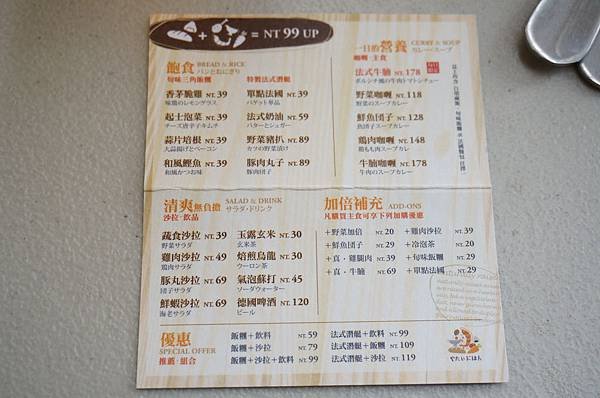 = NT 99 UP
飽食 BREAD & RICE
パンとおにぎり
旬味三角飯糰
特製法式潛艇
香茅脆雞 NT. 39
味鶏のレモングラス
單點法國 NT. 39
バゲット単品
起士泡菜 NT. 39
チーズ唐辛子キムチ
法式奶油 NT. 59
バターとシュガー
蒜片培根 NT. 39
大蒜揚げとベーコン
野菜豬扒 NT. 89
カツの野菜漬け
和風鰹魚 NT. 39
和風かつお味
豚肉丸子 NT. 89
豚肉団子
一日的營養 CURRY & SOUP
カレー・スープ
咖喱·主食
法式牛腩 NT. 178
ボルシチ風の牛肉トマトシチュー
野菜咖喱 NT. 118
野菜のスープカレー
鮮魚団子 NT. 128
魚団子スープカレー
鶏肉咖喱 NT. 148
鶏もも肉スープカレー
牛腩咖喱 NT. 178
牛肉のスープカレー
清爽無負擔 SALAD & DRINK
サラダ・ドリンク
沙拉·飲品
蔬食沙拉 NT. 39
野菜サラダ
玉露玄米 NT. 30
玄米茶
雞肉沙拉 NT. 49
鶏肉サラダ
焙煎烏龍 NT. 30
ウーロン茶
豚丸沙拉 NT. 69
団子サラダ
氣泡蘇打 NT. 45
ソーダウォーター
鮮蝦沙拉 NT. 69
海老サラダ
德國啤酒 NT. 120
ビール
加倍補充 ADD-ONS
凡購買主食可享下列加購優惠
+野菜加倍 NT. 20
+雞肉沙拉 NT. 39
+鮮魚団子 NT. 29
+冷泡茶 NT. 20
+真·雞腿肉 NT. 39
+旬味飯糰 NT. 29
+真·牛腩 NT. 69
+單點法國 NT. 29
優惠
SPECIAL OFFER
推薦·組合
飯糰+飲料 NT. 59
飯糰+沙拉 NT. 79
飯糰+沙拉+飲料 NT. 99
法式潛艇+飲料 NT. 99
法式潛艇+飯糰 NT. 109
法式潛艇+沙拉 NT. 119